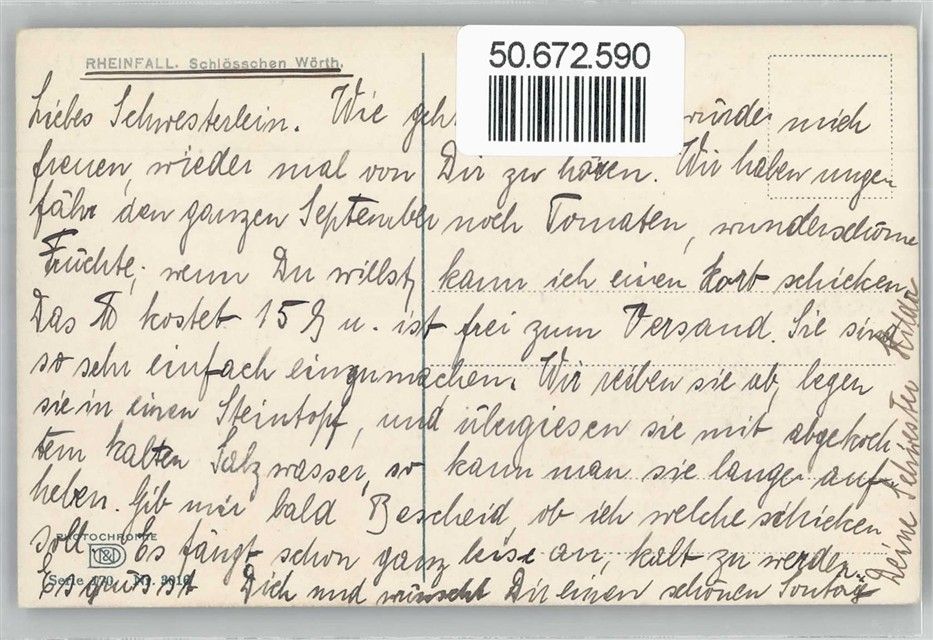 50.672.590
RHEINFALL. Schlösschen Wörth.
Liebes Schwesterlein. Wie geh würde mich
freuen, wieder mal von Dir zu hören. Wir haben ungen
fähr den ganzen September noch Tomaten, wunderschöne
Früchte; wenn Du willst, kann ich einen Korb schicken.
Das ℔ kostet 15 ₰ u. ist frei zum Versand. Sie sind
so sehr einfach einzumachen. Wir reiben sie ab, legen
sie in einen Steintopf, und übergiesen sie mit abgekoch-
tem kalten Salzwasser, so kann man sie lange auf-
heben. Gib mir bald Bescheid, ob ich welche schicken
soll. Es fängt schon ganz leise an, kalt zu werden.
Es grüßt Dich und wünscht Dir einen schönen Sontag
Deine Schwester Hilda
PHOTOCHROMIE
Serie 170 Nr.